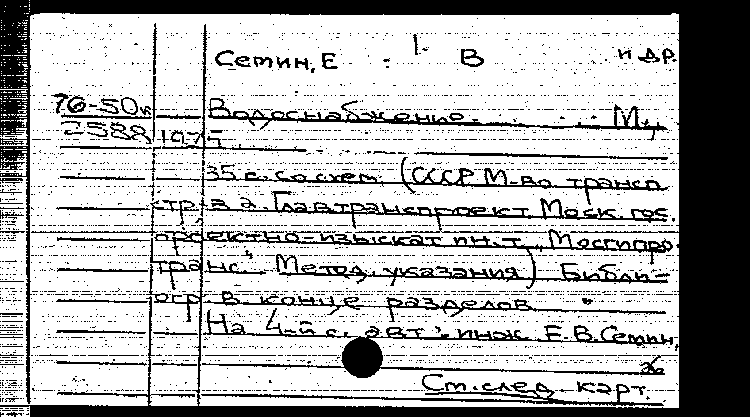 Сетин, Е. В. и др.
76-50к Водоснабжение. М.,
2588 1975.
35 с. со схем. (СССР М-во трансп.
стр-ва. Главтранспроект. Моск. гос.
проектно-изыскат. ин-т „Мосгипро-
транс". Метод. указания) Библи-
огр. в конце разделов
На 4-й с. авт.: инж. Е. В. Сетин,
См. след. карт.